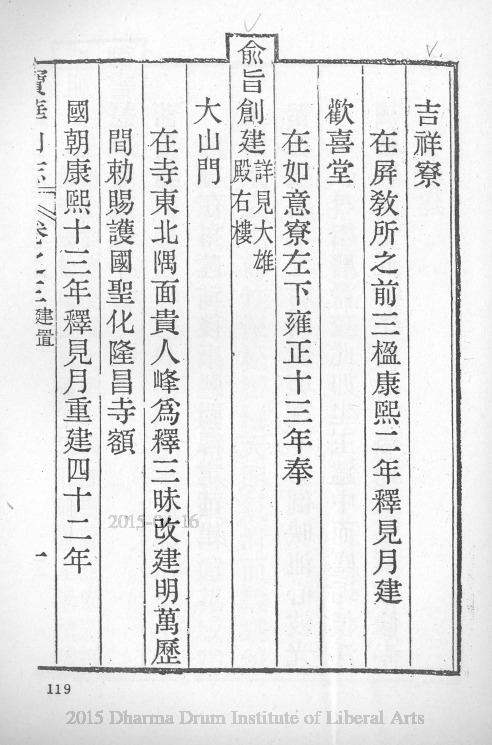 吉祥寮
在屏敎所之前三楹康熙二年釋見月建
歡喜堂
在如意寮左下雍正十三年奉
俞旨創建詳見大雄殿右樓
大山門
在寺東北隅面貴人峰爲釋三昧改建明萬歷
間勅賜護國聖化隆昌寺額
國朝康熙十三年釋見月重建四十二年
寶華山志 卷之三 建置 一
119
2015 Dharma Drum Institute of Liberal Arts